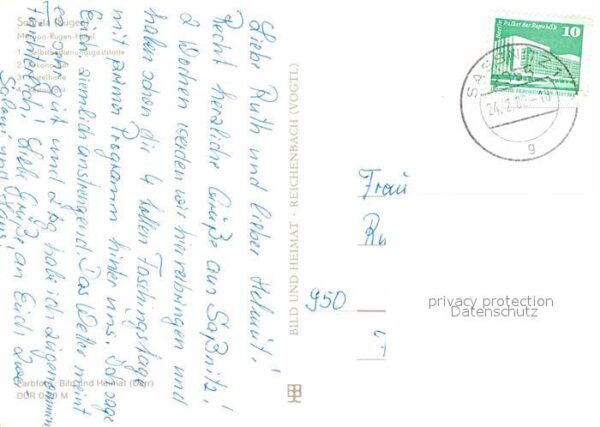 Saßnitz (Rügen)
Mitropa-Rügen-Hotel
1 Selbstbedienungsgaststätte
4
Liebe Ruth und lieber Helmut!
Recht herzliche Grüße aus Saßnitz!
2 Wochen werden wir hier verbringen und
haben schon die 4 tollen Faschingstage
mit prima Programm hinter uns. Ich sage
Euch, ziemlich anstrengend. Das Wetter meint
es sehr gut und 2 kg hab ich zugenommen
Liebe Grüße an Euch Zwei
Farbfoto: Bild und Heimat (Darr)
DDR 0,20 M
BILD UND HEIMAT · REICHENBACH (VOGTL)
Berlin, Palast der Republik
10
SASSNITZ 1
24.2.82-10
g
Frau
Ru
950
privacy protection
Datenschutz